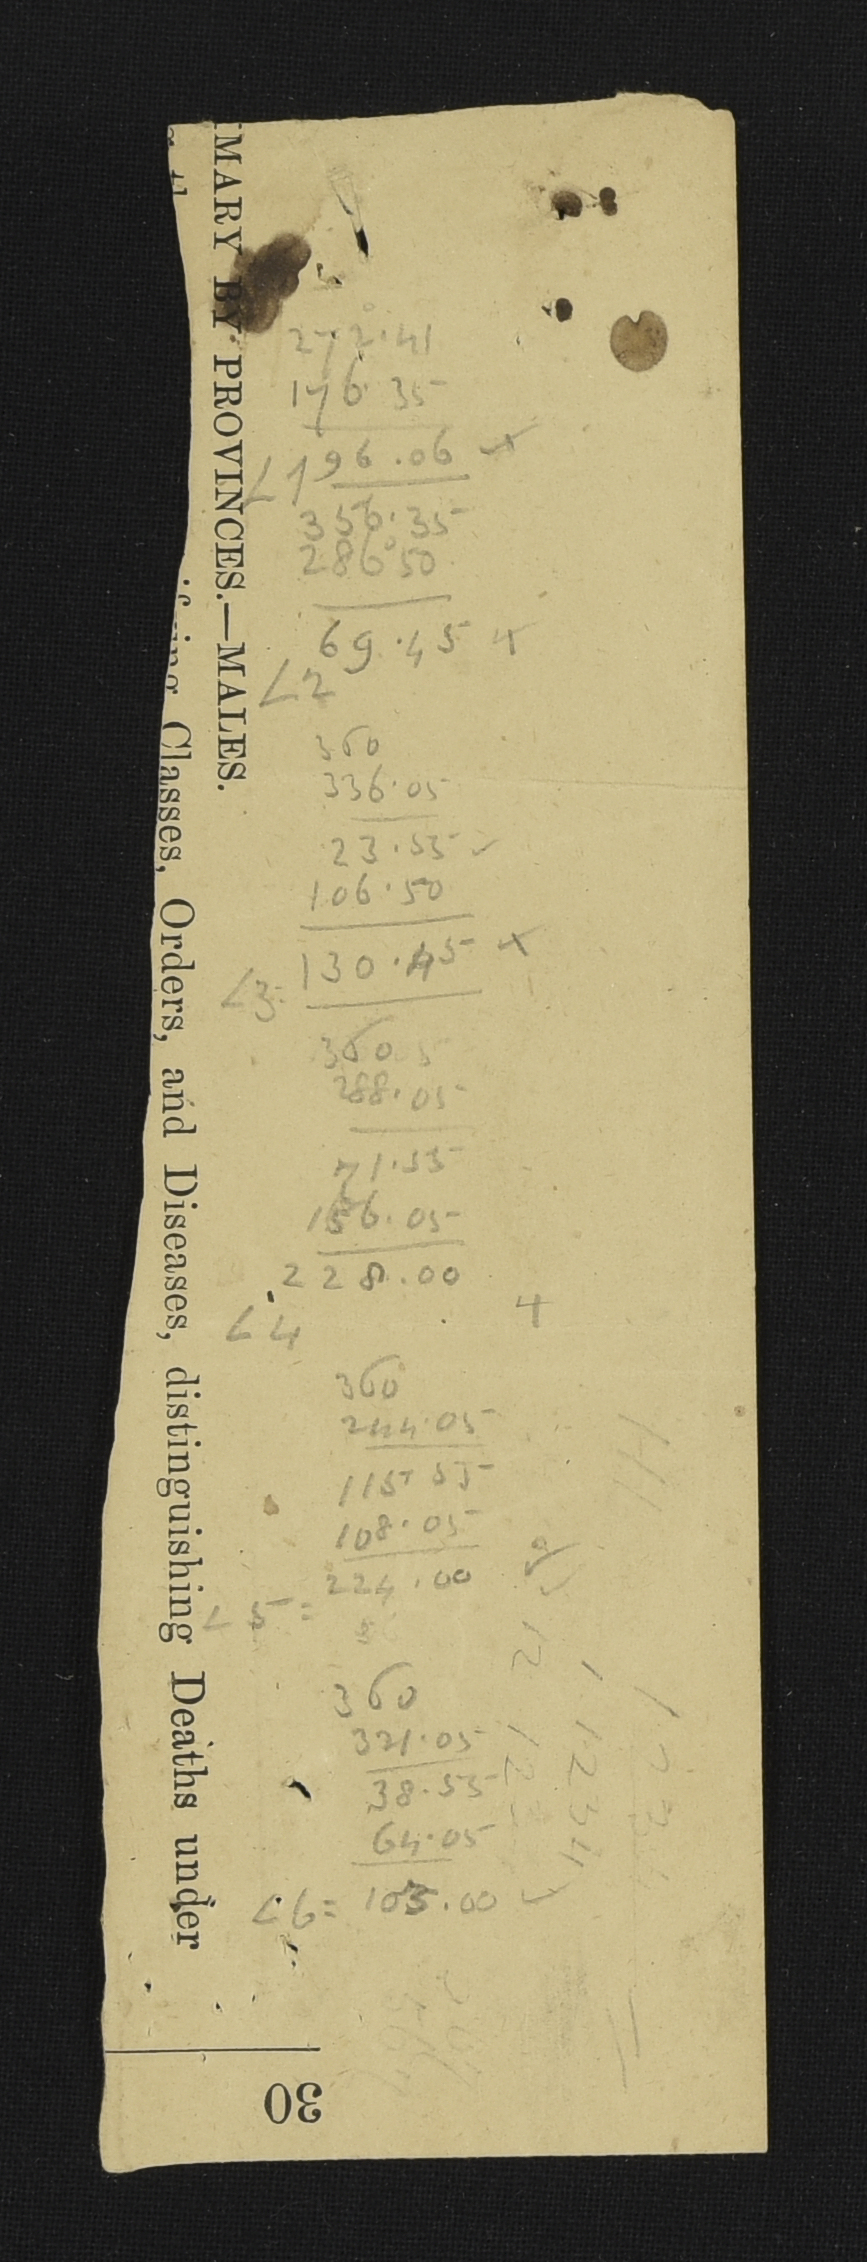 MARY BY PROVINCES.—MALES.
Classes, Orders, and Diseases, distinguishing Deaths under
30
272°.41
176.35
∠1 96.06 ×
356.35
286°50
69.45 ×
∠2
360
336.05
23.55 ✓
106.50
∠3= 130.45 ×
360
288.05
71.55
156.05
228.00
∠4 ×
360°
244.05
115.55
108.05
224.00
∠5=
360
321.05
38.55
64.05
∠6= 103.00 ✓
12
12
1234